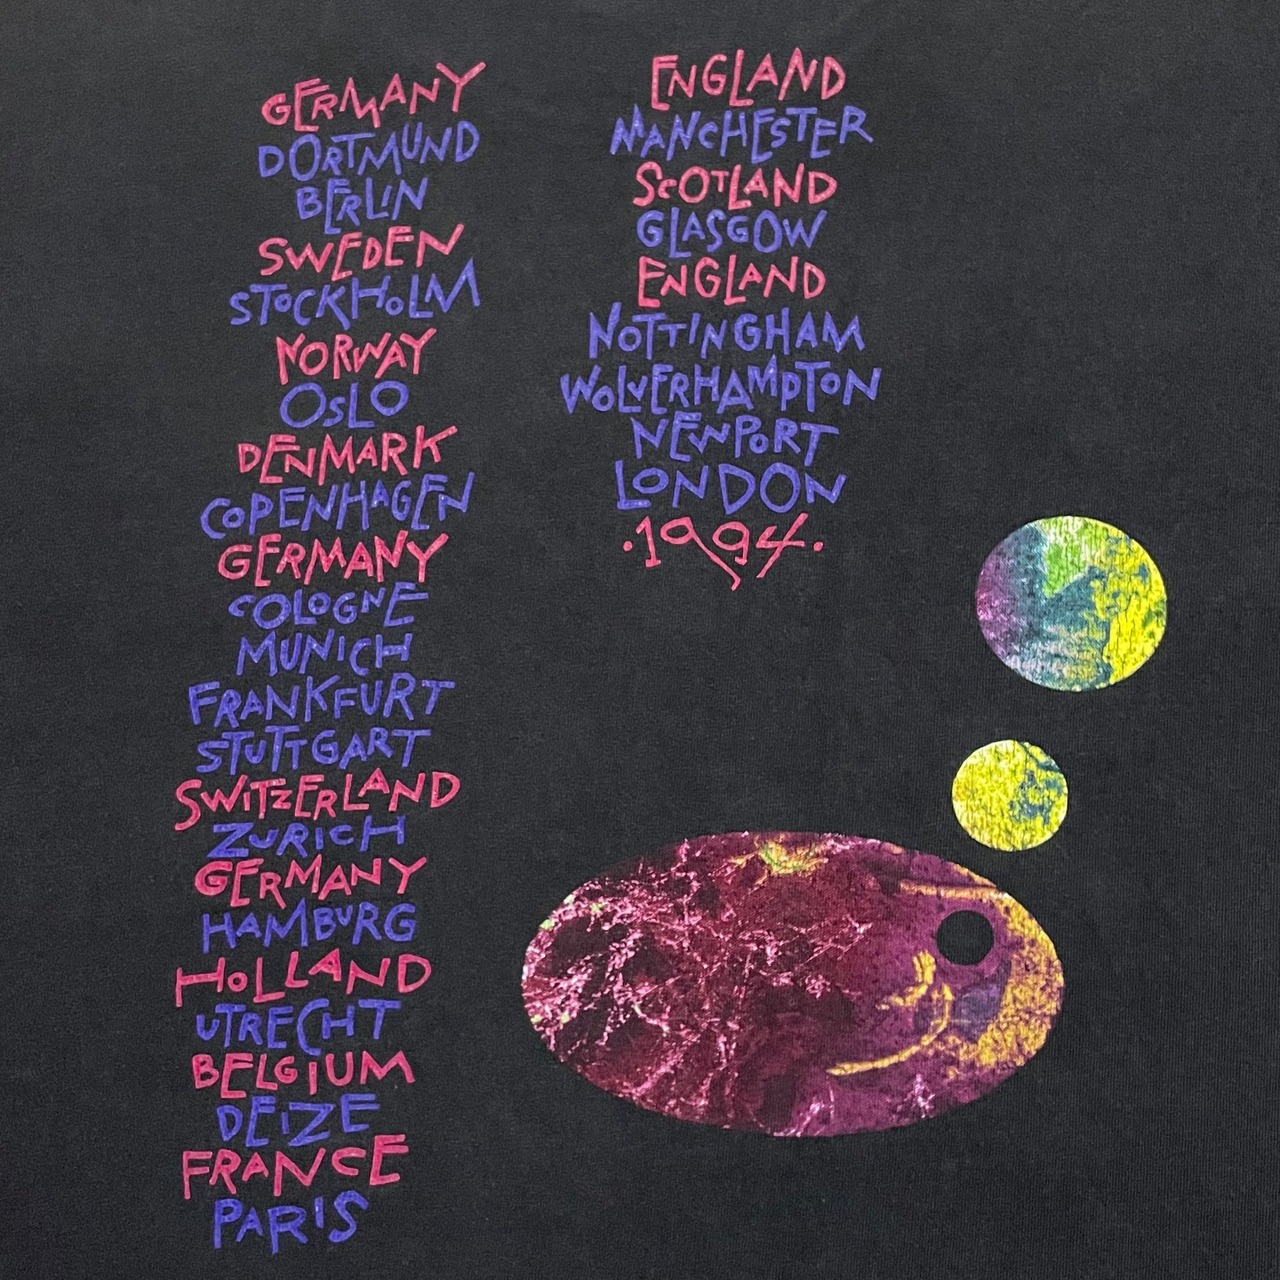 GERMANY
DORTMUND
BERLIN
SWEDEN
STOCKHOLM
NORWAY
OSLO
DENMARK
COPENHAGEN
GERMANY
COLOGNE
MUNICH
FRANKFURT
STUTTGART
SWITZERLAND
ZURICH
GERMANY
HAMBURG
HOLLAND
UTRECHT
BELGIUM
DEIZE
FRANCE
PARIS
ENGLAND
MANCHESTER
SCOTLAND
GLASGOW
ENGLAND
NOTTINGHAM
WOLVERHAMPTON
NEWPORT
LONDON
.1994.